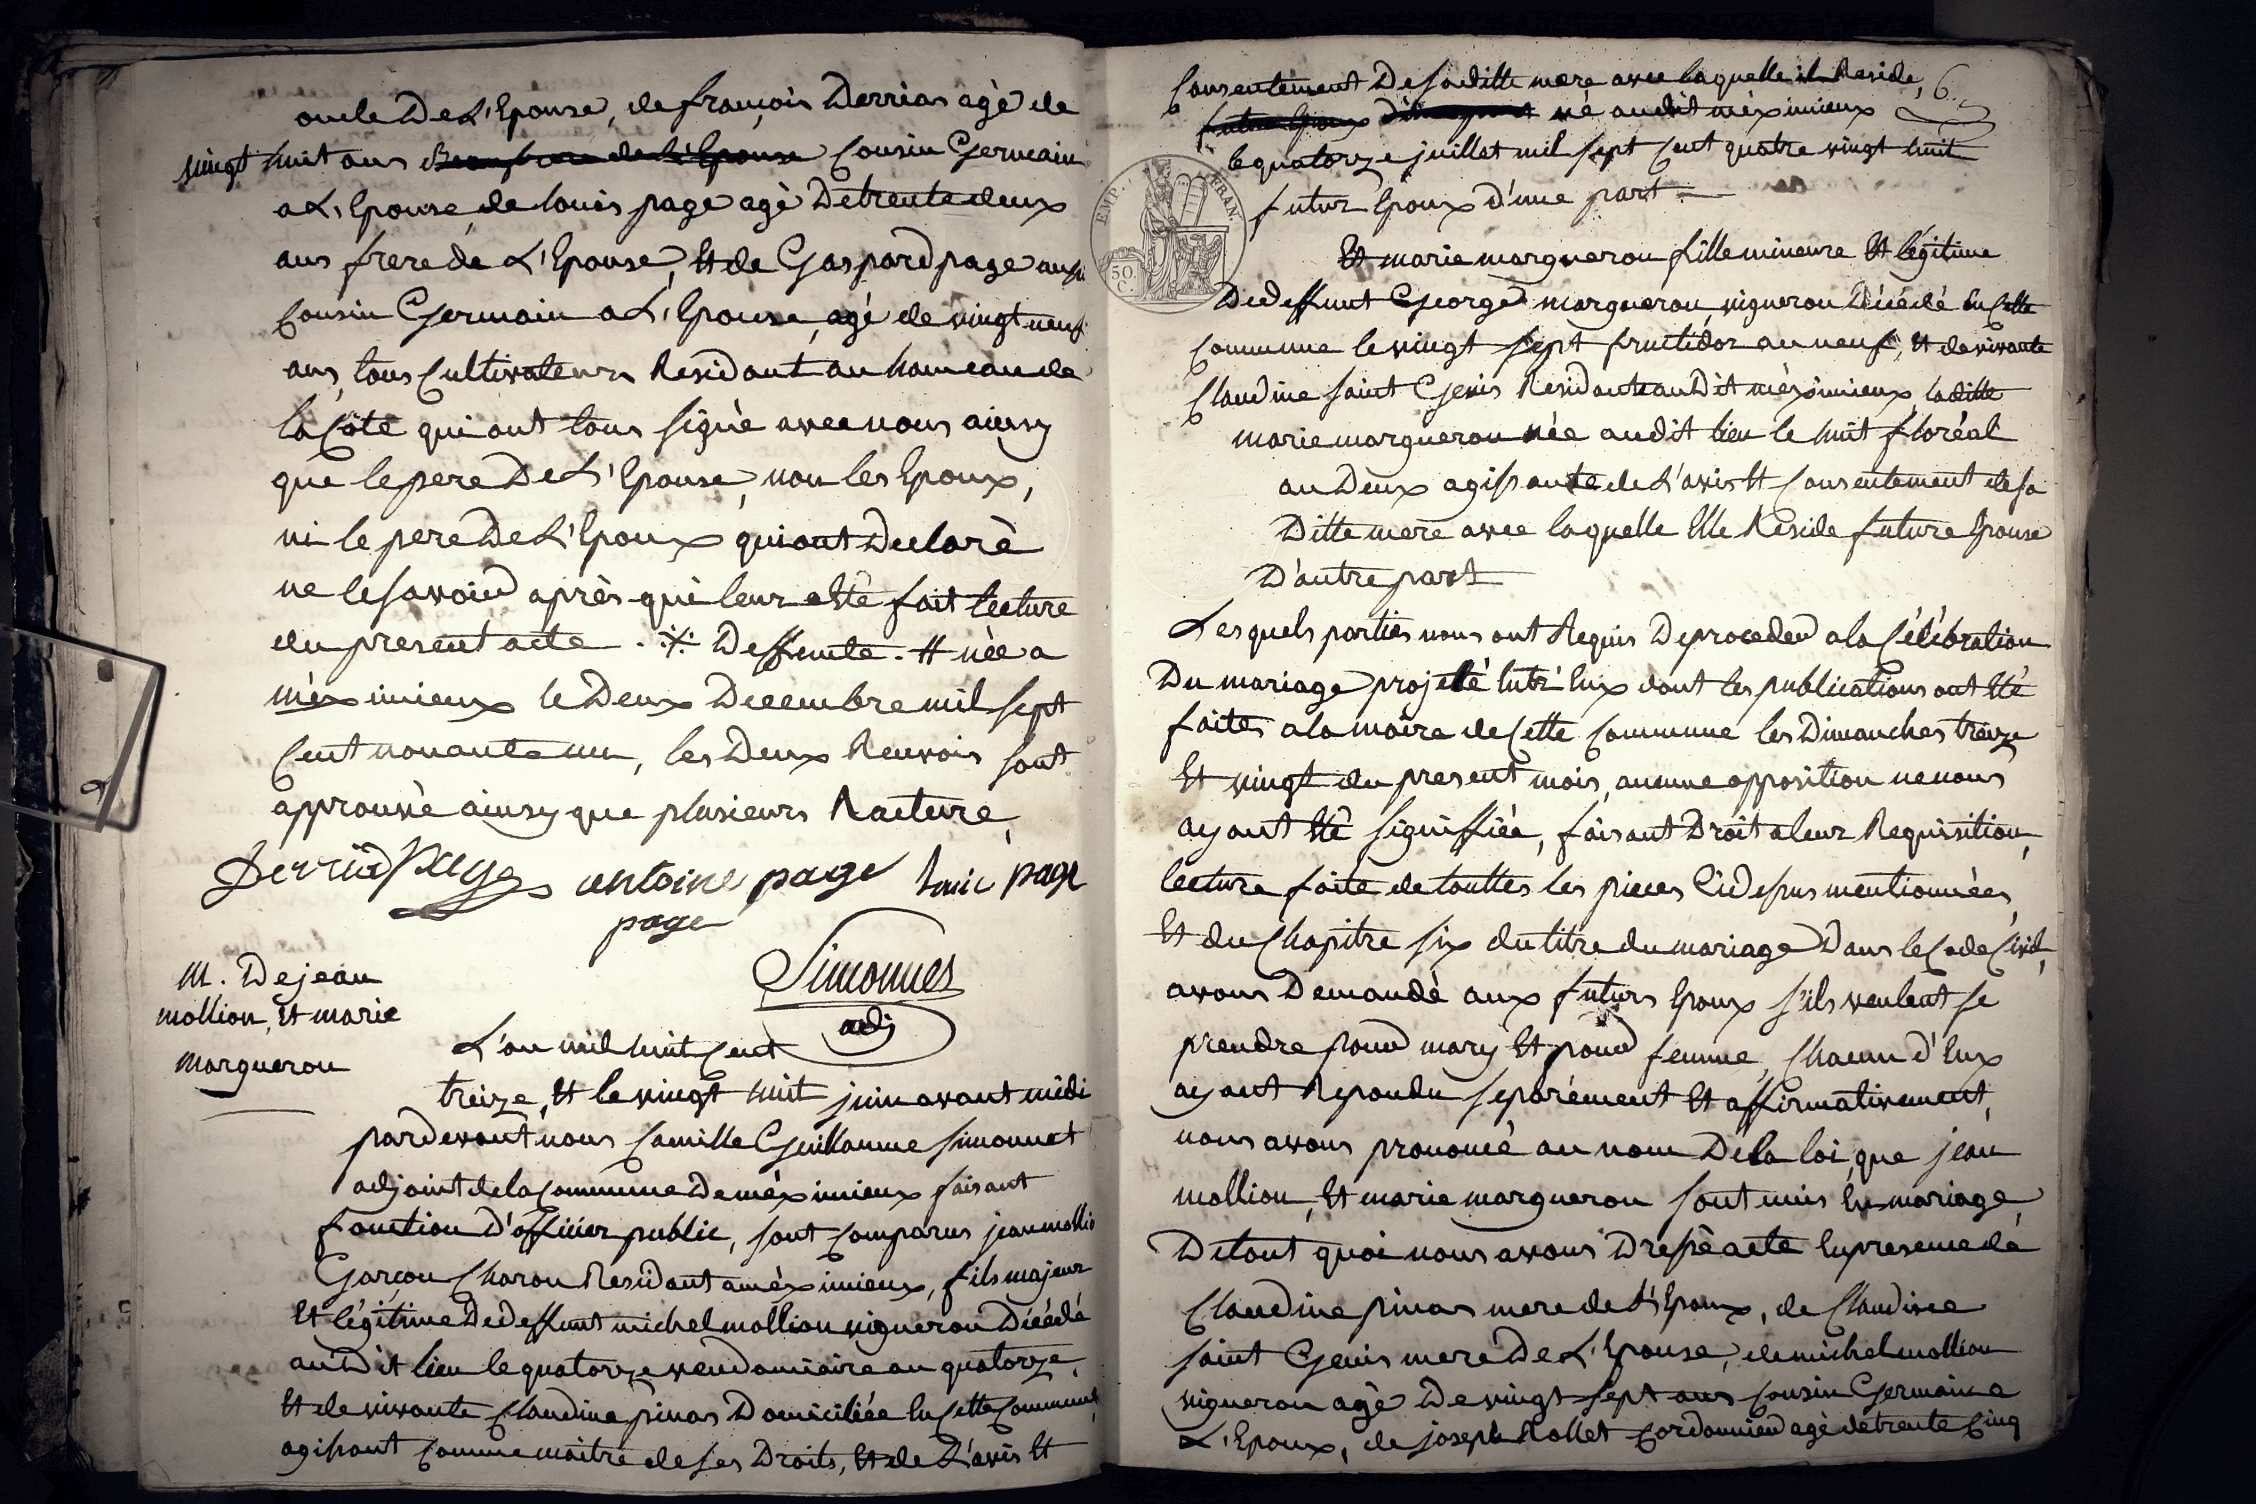 oncle De L'Epouse, de françois Derrias agè de
vingt huit ans Beaufrere de L'Epouse Cousin Germain
a L'Epouse, de louis page agè De trente deux
ans frere de L'Epouse, Et de Gaspard page aussi
Cousin Germain a L'Epouse, agé de vingt neuf
ans, tous Cultivateurs Residant au hameau de
la Côte qui ont tous signè avec nous ainsy
que le pere De L'Epouse, non les Epoux,
ni le pere De L'Epoux qui ont Declarè
ne le savoir après què leur a Etè fait lecture
du present acte . ·/· Deffunte . # nèe a
mèximieux le Deux Decembre mil sept
Cent nonante un, les Deux Renvois sont
approuvè ainsy que plusieurs Racture,
Derriad page antoine page Louis page
page
Simonnet
adj
M. De jean
mollion, Et marie
marguerou
L'an mil huit Cent
treize, Et le vingt huit juin avant midi
pardevant nous Camille Guillaume Simonnet
adjoint de la Commune De mèximieux faisant
fonction D'officier public, sont Comparus jean mollio
Garçon Charon Residant a mèximieux, fils majeur
Et légitime De deffunt michel mollion vigneron Décédé
au Dit lieu le quatorze vendamiaire an quatorze,
Et de vivante Claudine pinas Domiciliée En Cette Commune,
agissant Comme maitre de ses Droits, Et de L'avis Et
Consentement De sa ditte mere avec laquelle il Reside,
6
futur Epoux né au dit mèximieux
le quatorze juillet mil sept Cent quatre vingt huit
futur Epoux D'une part
EMP. FRAN.
50 C.
Et marie marguerou fille mineure Et légitime
De deffunt George marguerou, vigneron Décédé En Cette
Commune le vingt sept fructidor an neuf, Et de vivante
Claudine saint Genis Residante au Dit mèximieux la ditte
marie marguerou née au dit lieu le huit floréal
an Deux agissante de L'avis Et Consentement de sa
Ditte mere avec laquelle Elle Reside future Epouse
D'autre part
Lesquels parties nous ont Requis De proceder a la Célébration
Du mariage projeté Entr' Eux dont les publications ont Eté
faites a la maire de Cette Commune les Dimanches treize
Et vingt du present mois, aucune opposition ne nous
ayant Etè signiffiée, faisant Droit a leur Requisition,
lecture faite de touttes les pieces Cidessus mentionnèes,
Et du Chapitre six du titre du mariage Dans le Code Civil,
avons Demandè aux futurs Epoux s'ils veulent se
prendre pour mary Et pour femme, Chacun d'Eux
ayant Repondu séparément Et affirmativement,
nous avons prononcé au nom De la loi, que jean
mollion, Et marie marguerou sont unis En mariage,
De tout quoi nous avons Dressé acte En presence de
Claudine pinas mere de L'Epoux, de Claudine
saint Genis mere De L'Epouse, de michel mollion
vigneron agè De vingt sept ans Cousin Germain a
L'Epoux, de joseph Rollet Cordonnier agè de trente Cinq